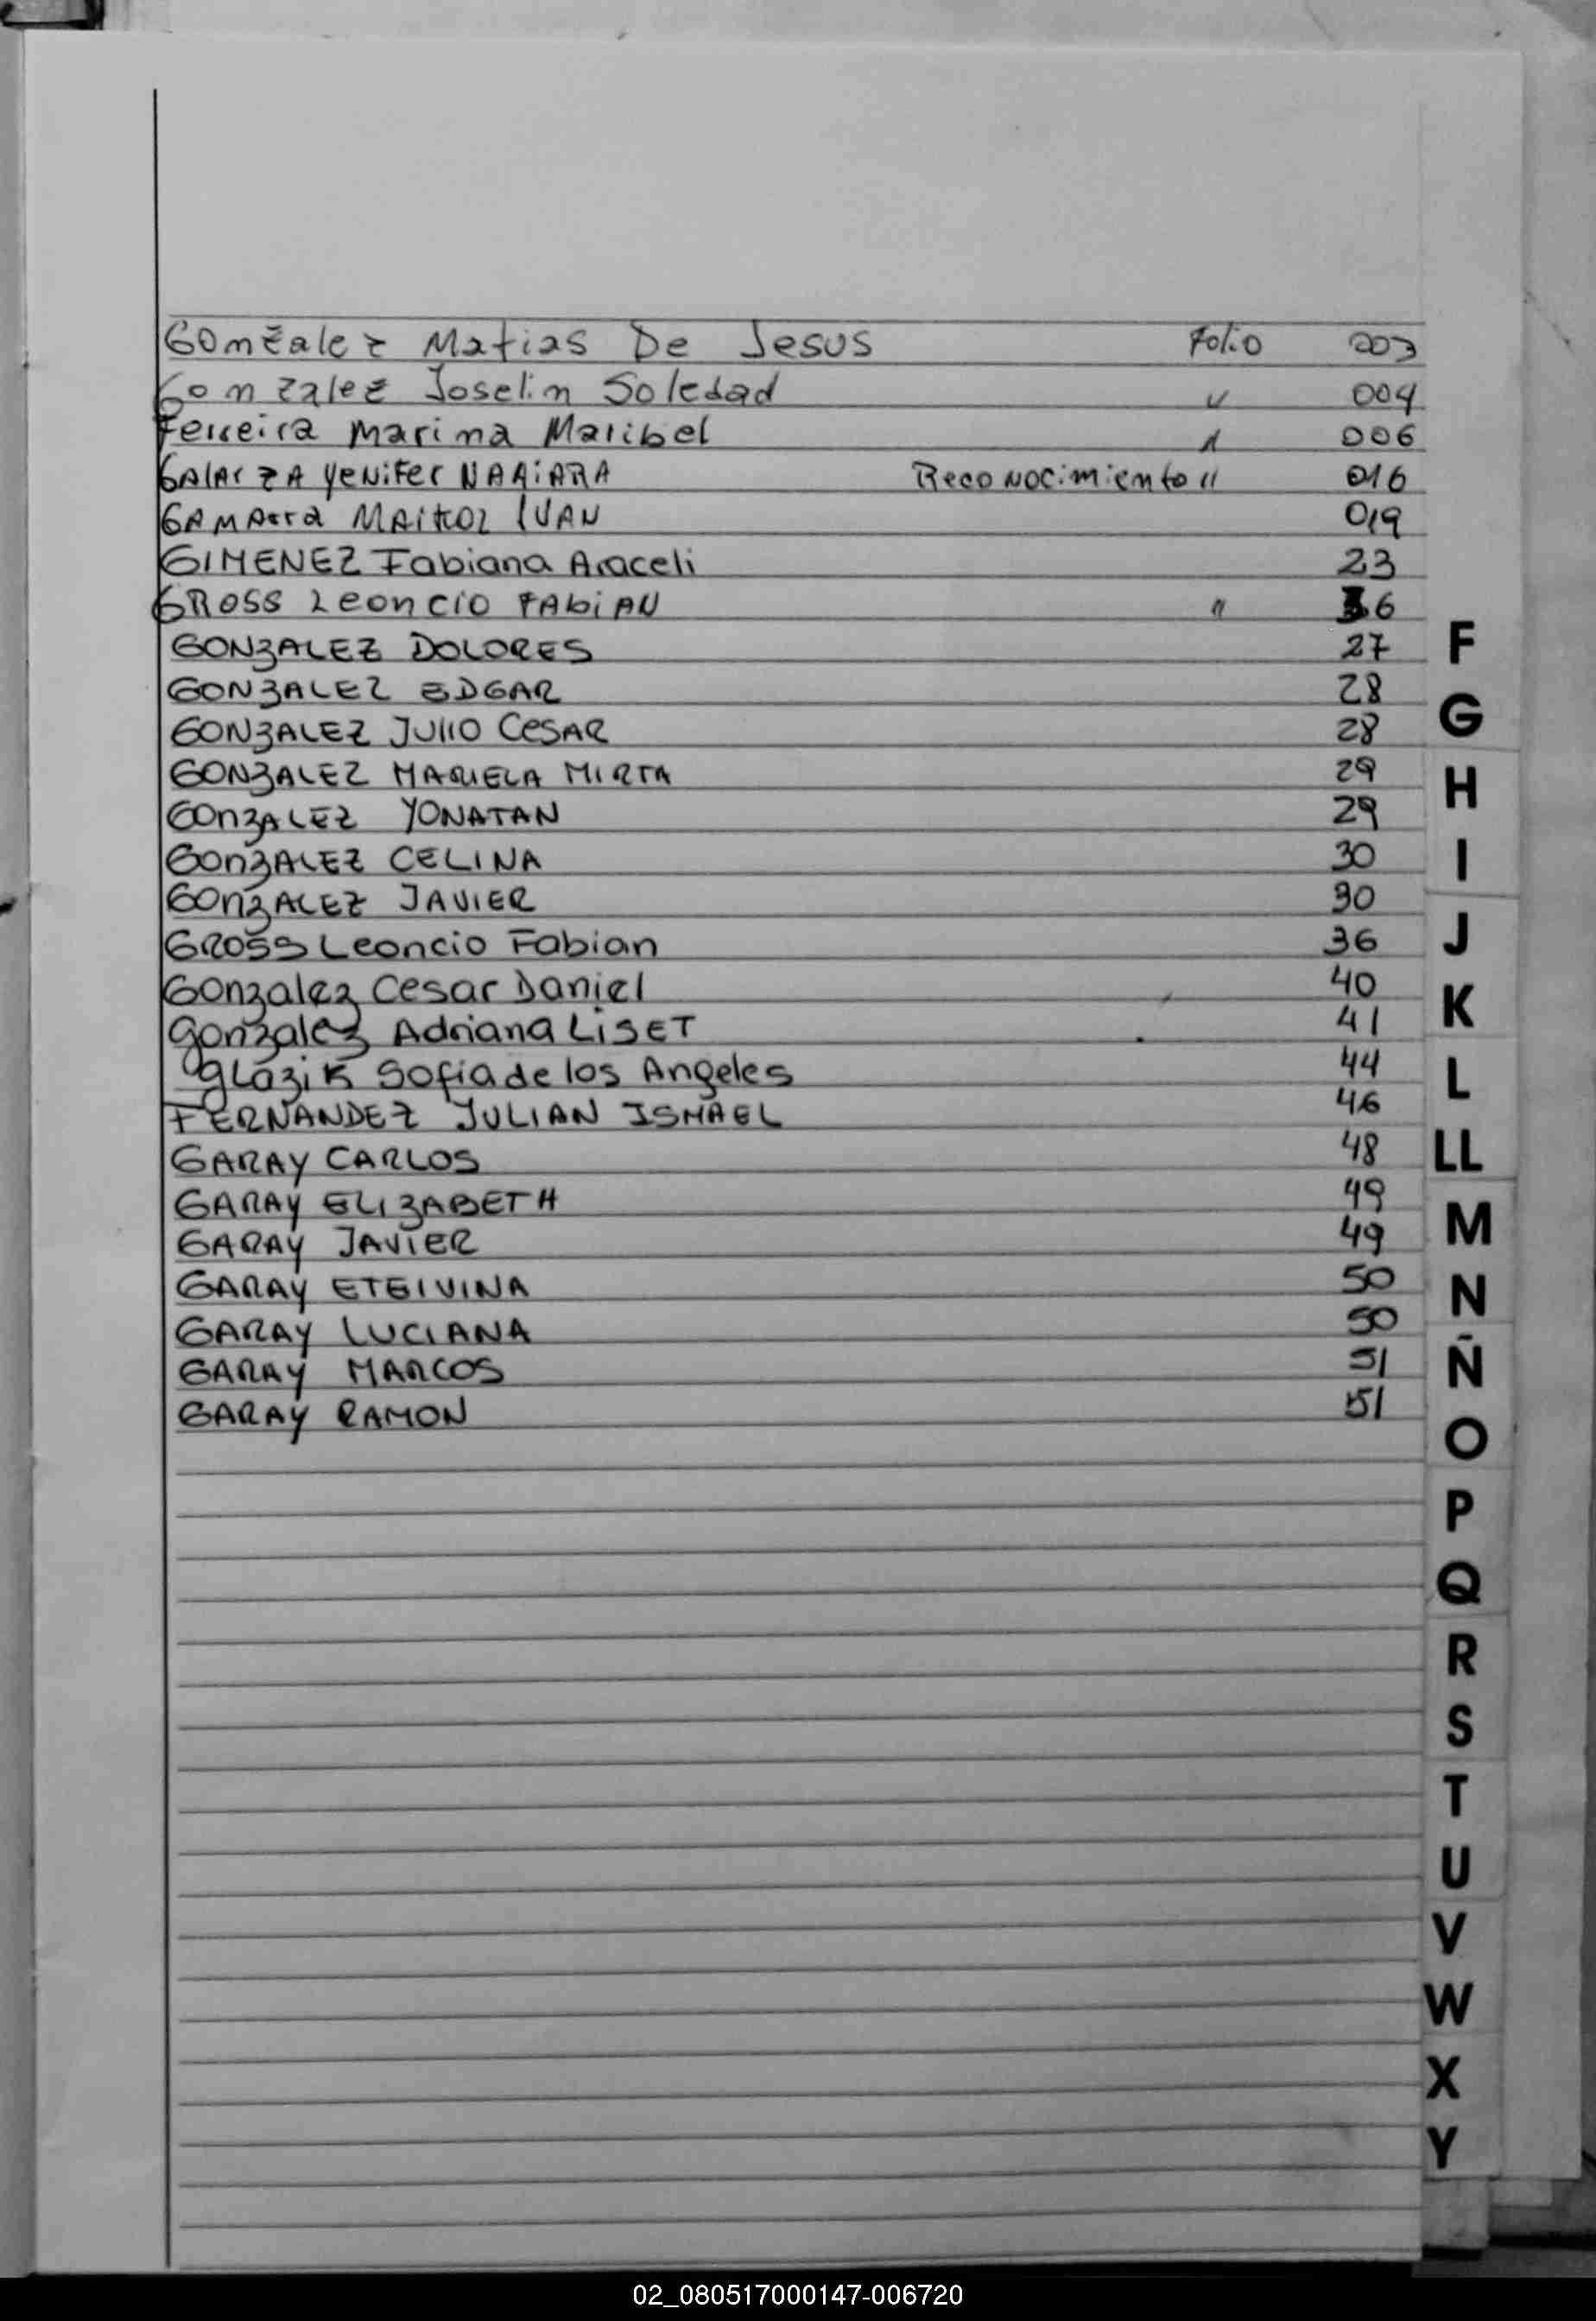 Gonzalez Matias De Jesus Folio 003
Gonzalez Joselin Soledad " 004
Ferreira Marina Maribel " 006
GALARZA YENIFER NAAIARA Reconocimiento " 016
GAMArra MAIKOL IVAN 019
GIMENEZ Fabiana Araceli 23
GROSS Leoncio FAbiAN " 36
GONZALEZ DOLORES 27
GONZALEZ EDGAR 28
GONZALEZ JULIO CESAR 28
GONZALEZ MARIELA MIRTA 29
GONZALEZ YONATAN 29
GONZALEZ CELINA 30
GONZALEZ JAVIER 30
GROSS Leoncio Fabian 36
Gonzalez Cesar Daniel 40
gonzalez Adriana LISET 41
glazik Sofia de los Angeles 44
FERNANDEZ JULIAN ISMAEL 46
GARAY CARLOS 48
GARAY ELIZABETH 49
GARAY JAVIER 49
GARAY ETELVINA 50
GARAY LUCIANA 50
GARAY MARCOS 51
GARAY RAMON 51
F
G
H
I
J
K
L
LL
M
N
Ñ
O
P
Q
R
S
T
U
V
W
X
Y
02_080517000147-006720